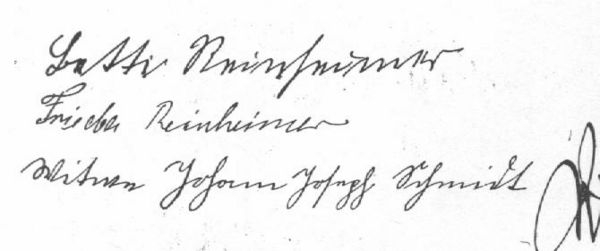 Betti Reinheimer
Frieda Reinheimer
Witwe Johann Joseph Schmidt